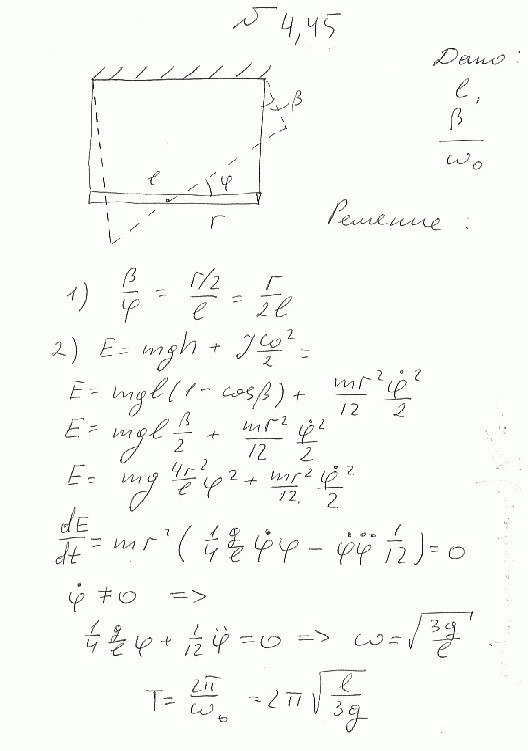 № 4,45
Дано:
l,
β
ω₀
β
l
φ
r
Решение:
1) β/φ = (r/2)/l = r/2l
2) E = mgh + Jω²/2 =
E = mgl(1 - cosβ) + mr²/12 φ̇²/2
E = mgl β/2 + mr²/12 φ̇²/2
E = mg 4r²/l φ² + mr²/12 φ̇²/2
dE/dt = mr² (1/4 g/l φ̇φ - φ̇φ̈ 1/12) = 0
φ̇ ≠ 0 =>
1/4 g/l φ + 1/12 φ̈ = 0 => ω = √(3g/l)
T = 2π/ω₀ = 2π √(l/3g)